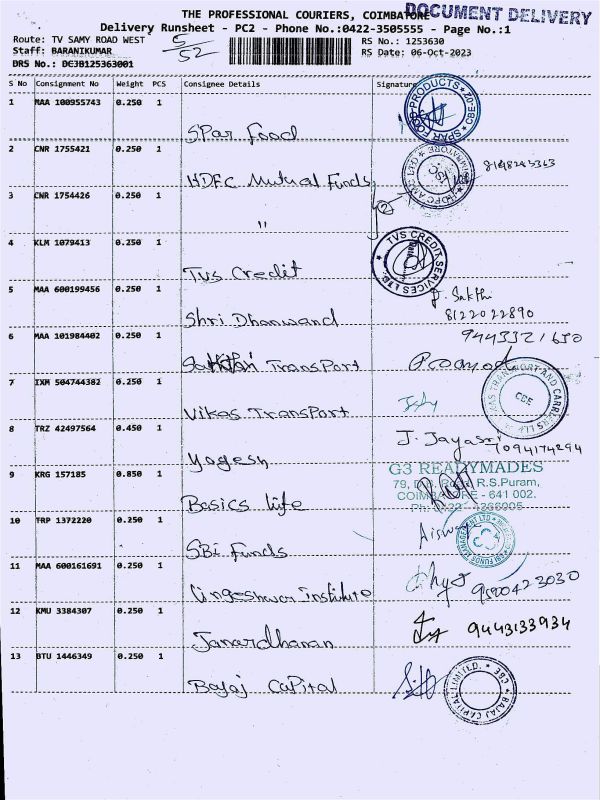 THE PROFESSIONAL COURIERS, COIMBATORE
DOCUMENT DELIVERY
Delivery Runsheet - PC2 - Phone No.:0422-3505555 - Page No.:1
Route: TV SAMY ROAD WEST
5/52
RS No.: 1253630
Staff: BARANIKUMAR
RS Date: 06-Oct-2023
DRS No.: DCJB125363001
S No Consignment No Weight PCS Consignee Details Signature
1 MAA 100955743 0.250 1 SPar Food
SPAR FOOD PRODUCTS CBE-02
2 CNR 1755421 0.250 1 HDFC Mutual Funds
HDFC AMC LTD COIMBATORE
3 CNR 1754426 0.250 1 "
2
4 KLM 1079413 0.250 1 Tvs Credit
TVS CREDIT SERVICES LTD.
5 MAA 600199456 0.250 1 Shri Dhanwand
P. Sakthi
8122022890
6 MAA 101984402 0.250 1 Sakthi Transport
7 IXM 504744382 0.250 1 Vikas Transport
CBE
8 TRZ 42497564 0.450 1 Yogesh
J. Jayasri
9 KRG 157185 0.850 1 Basics life
G3 READYMADES
R.S.Puram,
COIMBATORE - 641 002.
10 TRP 1372220 0.250 1 SBi Funds
SBI FUNDS MANAGEMENT LTD
11 MAA 600161691 0.250 1 lingeshwar institute
12 KMU 3384307 0.250 1 Janardhanan
9443133934
13 BTU 1446349 0.250 1 Bajaj Capital
BAJAJ CAPITAL LIMITED. CBE